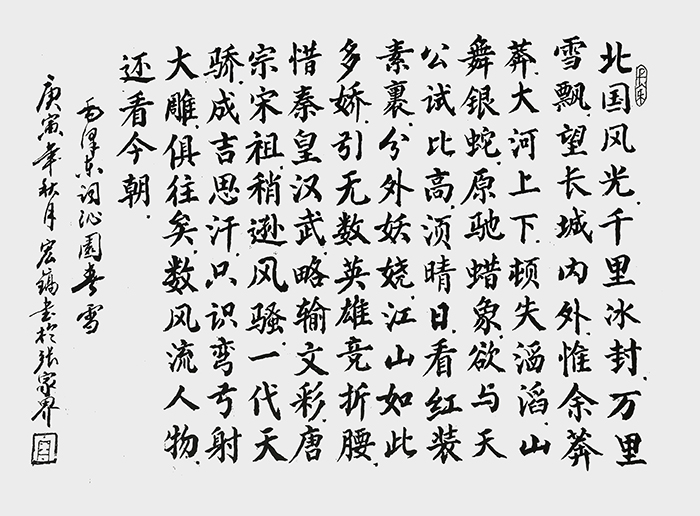 北国风光.千里冰封.万里
雪飘.望长城内外惟余莽
莽.大河上下.顿失滔滔.山
舞银蛇.原驰蜡象.欲与天
公试比高.须晴日.看红装
素裹.分外妖娆.江山如此
多娇.引无数英雄竞折腰.
惜秦皇汉武.略输文彩.唐
宗宋祖.稍逊风骚.一代天
骄.成吉思汗.只识弯弓射
大雕.俱往矣.数风流人物.
还看今朝.
毛泽东词沁园春雪
庚寅年秋月宏镐书於张家界